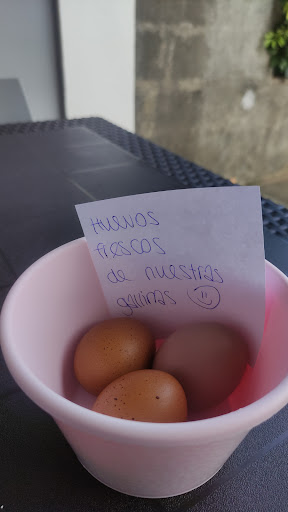 Huevos
frescos
de nuestras
gallinas ☺